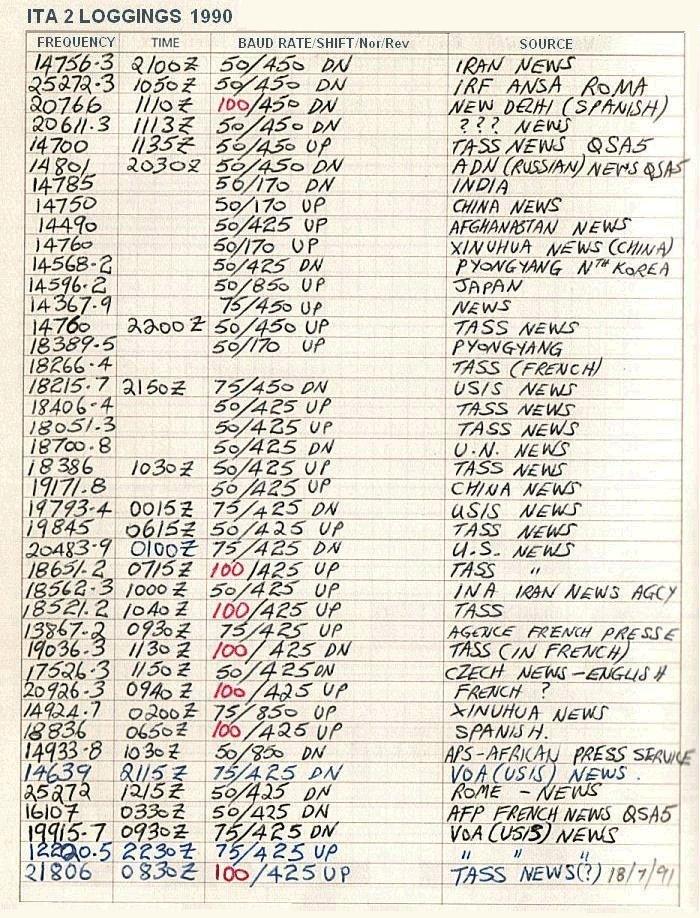 ITA 2 LOGGINGS 1990
FREQUENCY TIME BAUD RATE/SHIFT/Nor/Rev SOURCE
14756.3 2100Z 50/450 DN IRAN NEWS
25272.3 1050Z 50/450 DN IRF ANSA ROMA
20766 1110Z 100/450 DN NEW DELHI (SPANISH)
20611.3 1113Z 50/450 DN ??? NEWS
14700 1135Z 50/450 UP TASS NEWS QSA5
14801 2030Z 50/450 DN ADN (RUSSIAN) NEWS QSA5
14785 50/170 DN INDIA
14750 50/170 UP CHINA NEWS
14490 50/425 UP AFGHANASTAN NEWS
14760 50/170 UP XINUHUA NEWS (CHINA)
14568.2 50/425 DN PYONGYANG NTH KOREA
14596.2 50/850 UP JAPAN
14367.9 75/450 UP NEWS
14760 2200Z 50/450 UP TASS NEWS
18389.5 50/170 UP PYONGYANG
18266.4 TASS (FRENCH)
18215.7 2150Z 75/450 DN USIS NEWS
18406.4 50/425 UP TASS NEWS
18051.3 50/425 UP TASS NEWS
18700.8 50/425 DN U.N. NEWS
18386 1030Z 50/425 UP TASS NEWS
19171.8 50/425 UP CHINA NEWS
19793.4 0015Z 75/425 DN USIS NEWS
19845 0615Z 50/425 UP TASS NEWS
20483.9 0100Z 75/425 DN U.S. NEWS
18651.2 0715Z 100/425 UP TASS "
18562.3 1000Z 50/425 UP INA IRAN NEWS AGCY
18521.2 1040Z 100/425 UP TASS
13867.2 0930Z 75/425 UP AGENCE FRENCH PRESSE
19036.3 1130Z 100/425 DN TASS (IN FRENCH)
17526.3 1150Z 50/425 DN CZECH NEWS - ENGLISH
20926.3 0940Z 100/425 UP FRENCH ?
14924.7 0200Z 75/850 UP XINUHUA NEWS
18836 0650Z 100/425 UP SPANISH.
14933.8 1030Z 50/850 DN APS - AFRICAN PRESS SERVICE
14639 2115Z 75/425 DN VOA (USIS) NEWS.
25272 1215Z 50/425 DN ROME - NEWS
16107 0330Z 50/425 DN AFP FRENCH NEWS QSA5
19915.7 0930Z 75/425 DN VOA (USIS) NEWS
12220.5 2230Z 75/425 UP " " "
21806 0830Z 100/425 UP TASS NEWS(?) 18/7/91